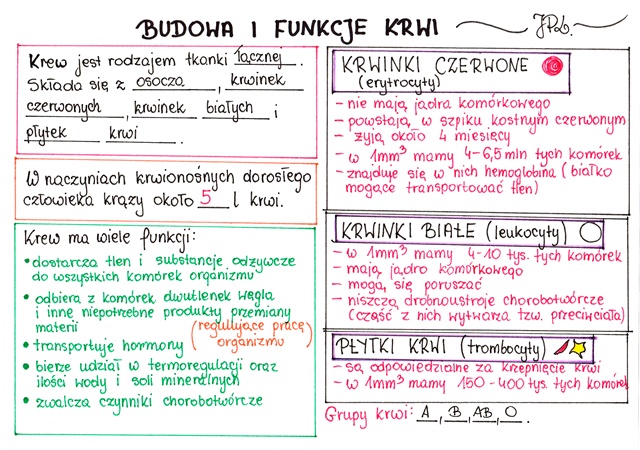 BUDOWA I FUNKCJE KRWI
Krew jest rodzajem tkanki łącznej.
Składa się z osocza, krwinek
czerwonych, krwinek białych i
płytek krwi.
W naczyniach krwionośnych dorosłego
człowieka krąży około 5 l krwi.
Krew ma wiele funkcji:
• dostarcza tlen i substancje odżywcze
do wszystkich komórek organizmu
• odbiera z komórek dwutlenek węgla
i inne niepotrzebne produkty przemiany
materii
• transportuje hormony (regulujące pracę
organizmu)
• bierze udział w termoregulacji oraz
ilości wody i soli mineralnych
• zwalcza czynniki chorobotwórcze
KRWINKI CZERWONE
(erytrocyty)
- nie mają jądra komórkowego
- powstają w szpiku kostnym czerwonym
- żyją około 4 miesięcy
- w 1mm³ mamy 4-6,5 mln tych komórek
- znajduje się w nich hemoglobina (białko
mogące transportować tlen)
KRWINKI BIAŁE (leukocyty)
- w 1mm³ mamy 4-10 tys. tych komórek
- mają jądro komórkowego
- mogą się poruszać
- niszczą drobnoustroje chorobotwórcze
(część z nich wytwarza tzw. przeciwciała)
PŁYTKI KRWI (trombocyty)
- są odpowiedzialne za krzepnięcie krwi
- w 1mm³ mamy 150-400 tys. tych komórek
Grupy krwi: A, B, AB, O.